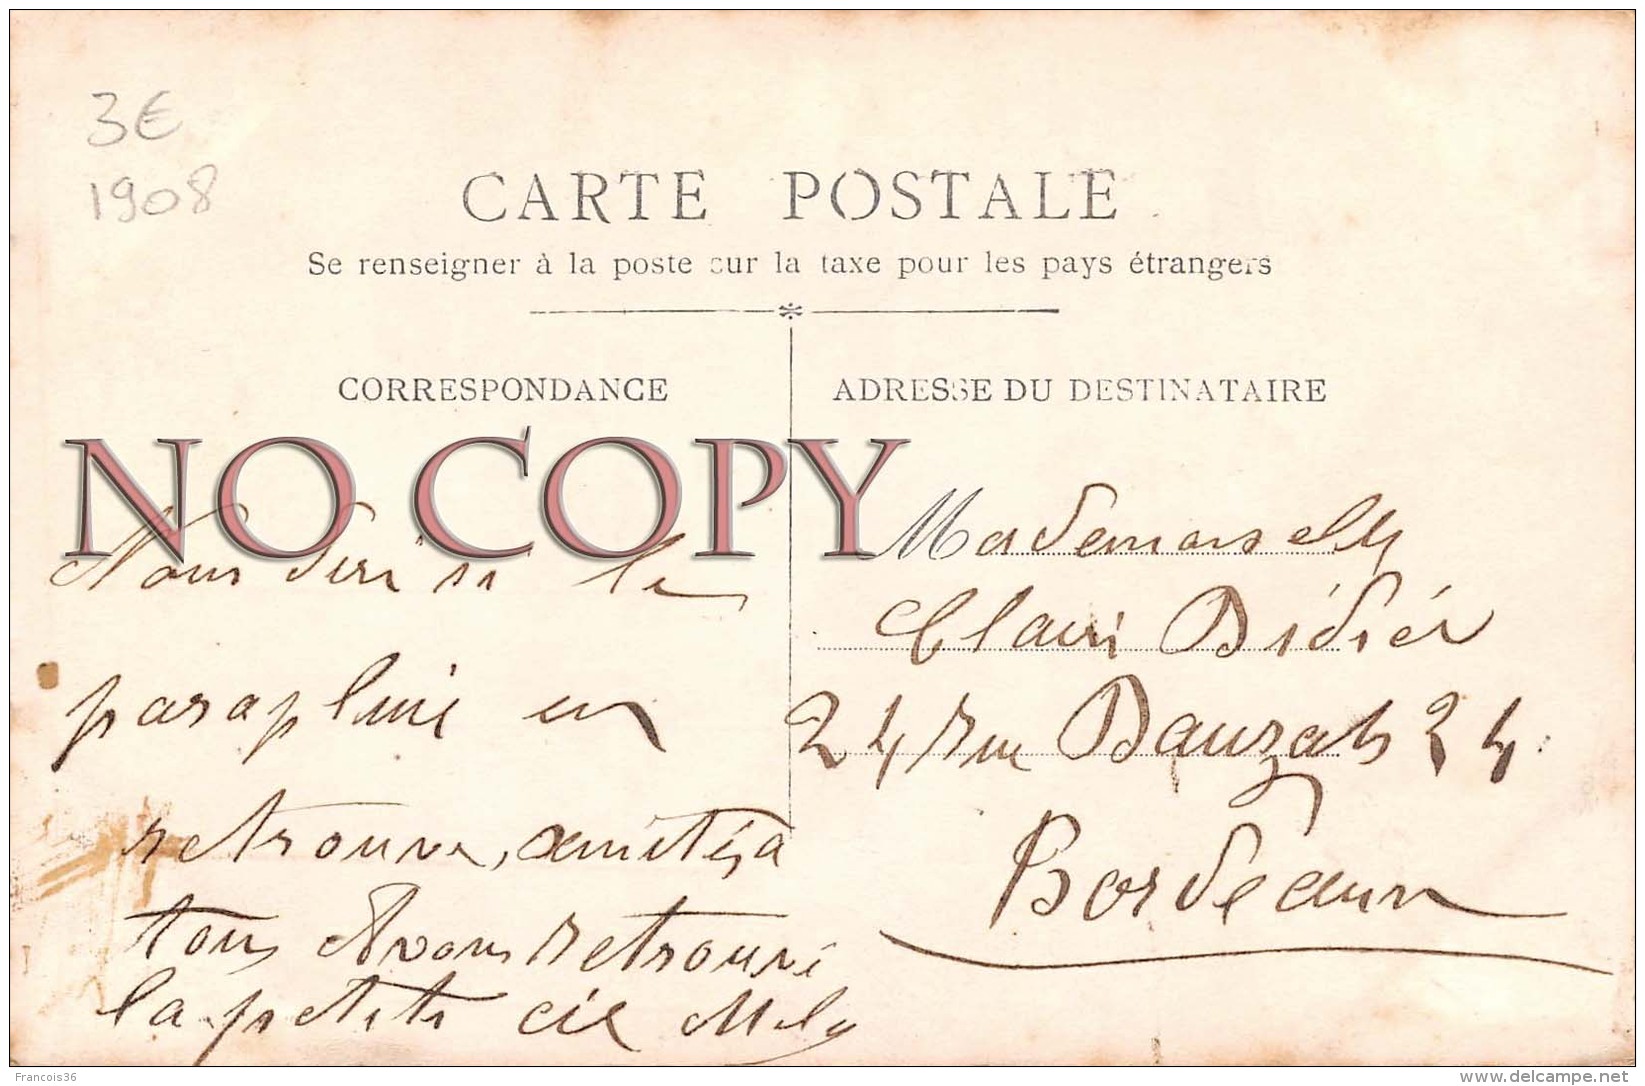 3€
1908
CARTE POSTALE
Se renseigner à la poste sur la taxe pour les pays étrangers
CORRESPONDANCE
ADRESSE DU DESTINATAIRE
NO COPY
le
parapluie en
retrouve, amitiés a
tous Avons retrouvé
la petite
Mademoiselle
Claire Didier
24 rue Dauzats 24
Bordeaux
Francois36
www.delcampe.net